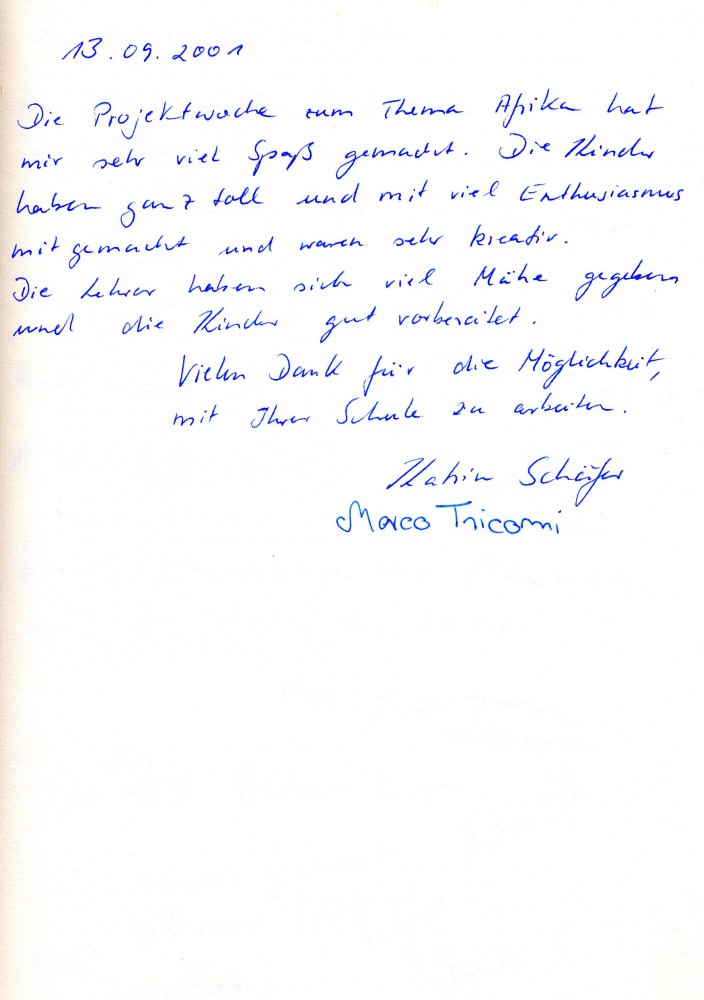 13.09.2001
Die Projektwoche zum Thema Afrika hat
mir sehr viel Spaß gemacht. Die Kinder
haben ganz toll und mit viel Enthusiasmus
mitgemacht und waren sehr kreativ.
Die Lehrer haben sich viel Mühe gegeben
und die Kinder gut vorbereitet.
Vielen Dank für die Möglichkeit,
mit Ihrer Schule zu arbeiten.
Katrin Schäfer
Marco Tricomi